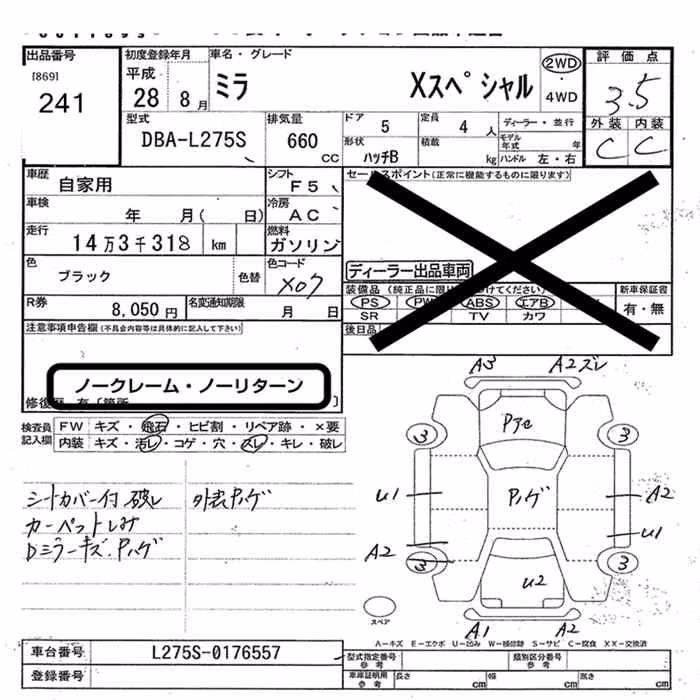 出品番号 初度登録年月 車名・グレード 2WD 評価点
[869] 平成 ミラ Xスペシャル ・ 3.5
241 28 8月 4WD
型式 排気量 ドア 定員 ディーラー・並行 外装 内装
DBA-L275S 660 CC 5 4人 モデル年式 年 C C
形状 積載 ハンドル 左・右
ハッチB kg
車歴 シフト セールスポイント(正常に機能するものに限ります)
自家用 F5
車検 年 月( 日) 冷房
AC
走行 燃料
14万3千318 km ガソリン
色 色替 色コード ディーラー出品車両
ブラック X07
装備品(純正品に限り 付けてください) 新車保証書
R券 名変通知期限 PS PW ABS エアB 有・無
8,050円 月 日 SR TV カワ
注意事項申告欄(不具合内容等は具体的に記入して下さい) 後日品
ノークレーム・ノーリターン
修復歴 有〔箇所 〕
検査員 FW キズ・飛石・ヒビ割・リペア跡・×要
記入欄 内装 キズ・汚レ・コゲ・穴・スレ・キレ・破レ
シートカバー付 破レ 外装Pハゲ
カーペットしみ
Dミラーキズ.Pハゲ
A3 A2ズレ
3 3
U1 Pハゲ A2
U1
A2
3 U2 3
スペア
A1 A2
A―キズ E―エクボ U―凹み W―補修跡 S―サビ C―腐食 XX―交換済
車台番号 L275S-0176557 型式指定番号 参考 類別区分番号 参考
登録番号 車庫証明用 参考 長さ cm 幅 cm 高さ cm